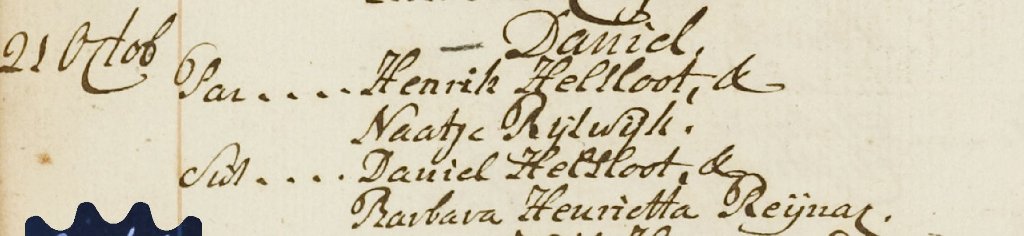 21 Octob
— Daniel.
Par.... Henrik Helsloot, &
Naatje Rijswijk.
Sus.... Daniel Helsloot, &
Barbara Henrietta Reijnar.